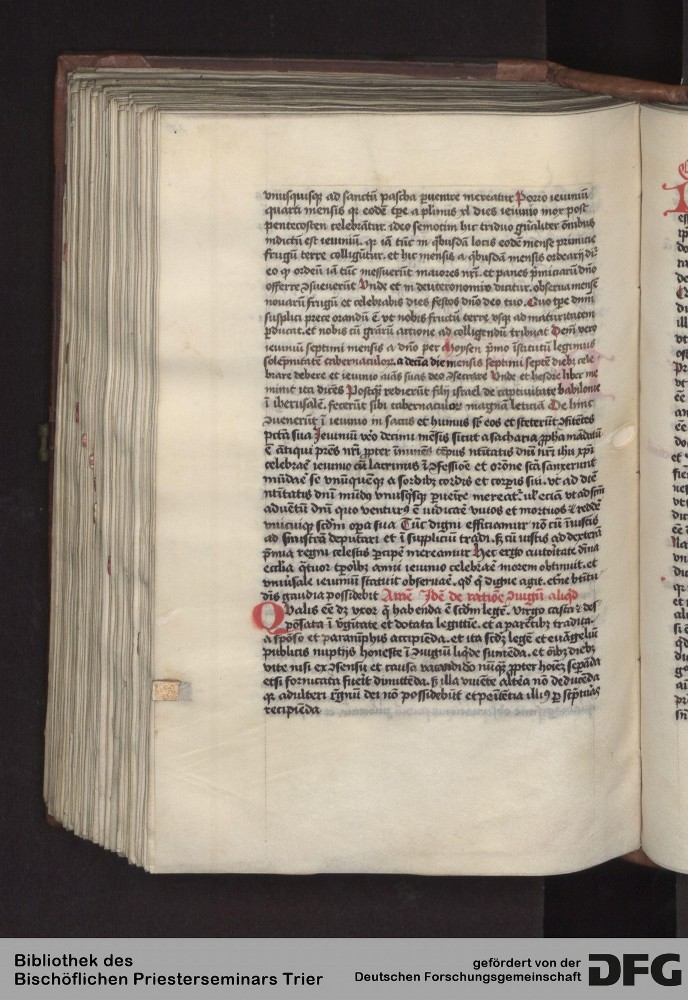 vnusquisqꝫ ad sanctū pascha ꝑuenire mereatur Porro ieiuniū
quarti mensis qr eodē tpe a plimis xl dies ieiunio mox post
pentecosten celebrātur. ideo semotim hic triduo gn̄aliter om̄ibus
indictū est ieiuniū. qr iā tūc in qͥbusdā locis eodē mense primicie
frugū terre colligūtur. et hic mensis a qͥbusdā mensis
eo qr iā tūc messuerūt maiores nr̄i. et panes pͥmiciarū dn̄o
offerre ꝯsueuerūt Vnde et in deuteronomio dicitur. obserua mense
nouarū frugū et celebrabis dies festos dn̄o deo tuo. Quo tpe dn̄m
supplici prece orandū ē vt nobis fructū terre vsqꝫ ad maturitatem
ꝑducat. et nobis cū grārū actione ad colligendū tribuat Dem̄ vero
ieiuniū septimi mensis a dn̄o per Moysen pͥmo īstitutū legimus
solēpnitatē tabernaculoꝝ. a decīa die mensis septimi septē diebꝫ cele
brare debere et ieiunio aīas suas deo ꝯsecrare Vnde et hesdre liber me
minit ita dicēs Postqꝫ redierūt filij israel de captiuitate babilonie
ī iherusalē. fecerūt sibi tabernaculoꝝ magnā leticiā De hinc
ꝯuenerūt ī ieiunio in saccis et humus sr̄ eos et steterūt ꝯfitētes
pctā sua Ieiuniū vēo decimi mēsis sicut a sacharia ꝓpha mādatū
ē ātiqui prēs nr̄i ꝓpter īminēs tēpus natiuitatis dn̄i nr̄i ihū xp̄i
celebrāe ieiunio cū lacrimis ī ꝯfessioē et orōne stā sanxerunt
mūdaē se vnūquēqꝫ a sordibꝫ cordis et corpis sui. vt ad diē
natiuitatis dn̄i mūdꝰ vnusqͥsqꝫ ꝑuenire mereatꝛ ul eciā vt ad scd̄m
aduētū dn̄i quo venturꝰ ē iudicaē viuos et mortuos ⁊ redde
vnicuiqꝫ scd̄m oꝑa sua Tūc digni efficiamur nō cū iniustis
ad sinistrā deputari et ī suppliciū trudi. sꝫ cū iustis ad dexterā
pͥmia regni celestis ꝑcipē mereamur Hec ergo auctoritate dīna
eccl̄ia qͣtuor tpoībꝫ anni ieiunio celebraē morem obtinuit. et
vniūsale ieiuniū statuit obseruaē. qd̄ qͥ digne agit. et̄ne btītu
dīs gaudia possidebit Amē Idē de ratiōe ꝯiugū aliqd
Qualis eē dꝫ vxor q̄ habenda ē scd̄m legē. virgo casta ⁊ des
pōsata ī vgītate et dotata legittīe. et a parētibꝫ tradita.
a spōso et paranīphis accipiēda. et ita scd̄ꝫ legē et euāgeliū
publicis nuptijs honeste ī ꝯiugiū sumēda. et oībꝫ diebꝫ
vite nisi ex ꝯsensu et causa vacandi do nūqꝫ ꝓpter hoīēꝫ seꝑāda
etsi fornicata fuerit dimittēda. sꝫ illa viuēte altēa nō deducēda
qr adulteri rēgnū dei nō possidebūt et penitētia illiꝰ ꝑ scpturas
recipiēda
Bibliothek des
Bischöflichen Priesterseminars Trier
gefördert von der
Deutschen Forschungsgemeinschaft
DFG